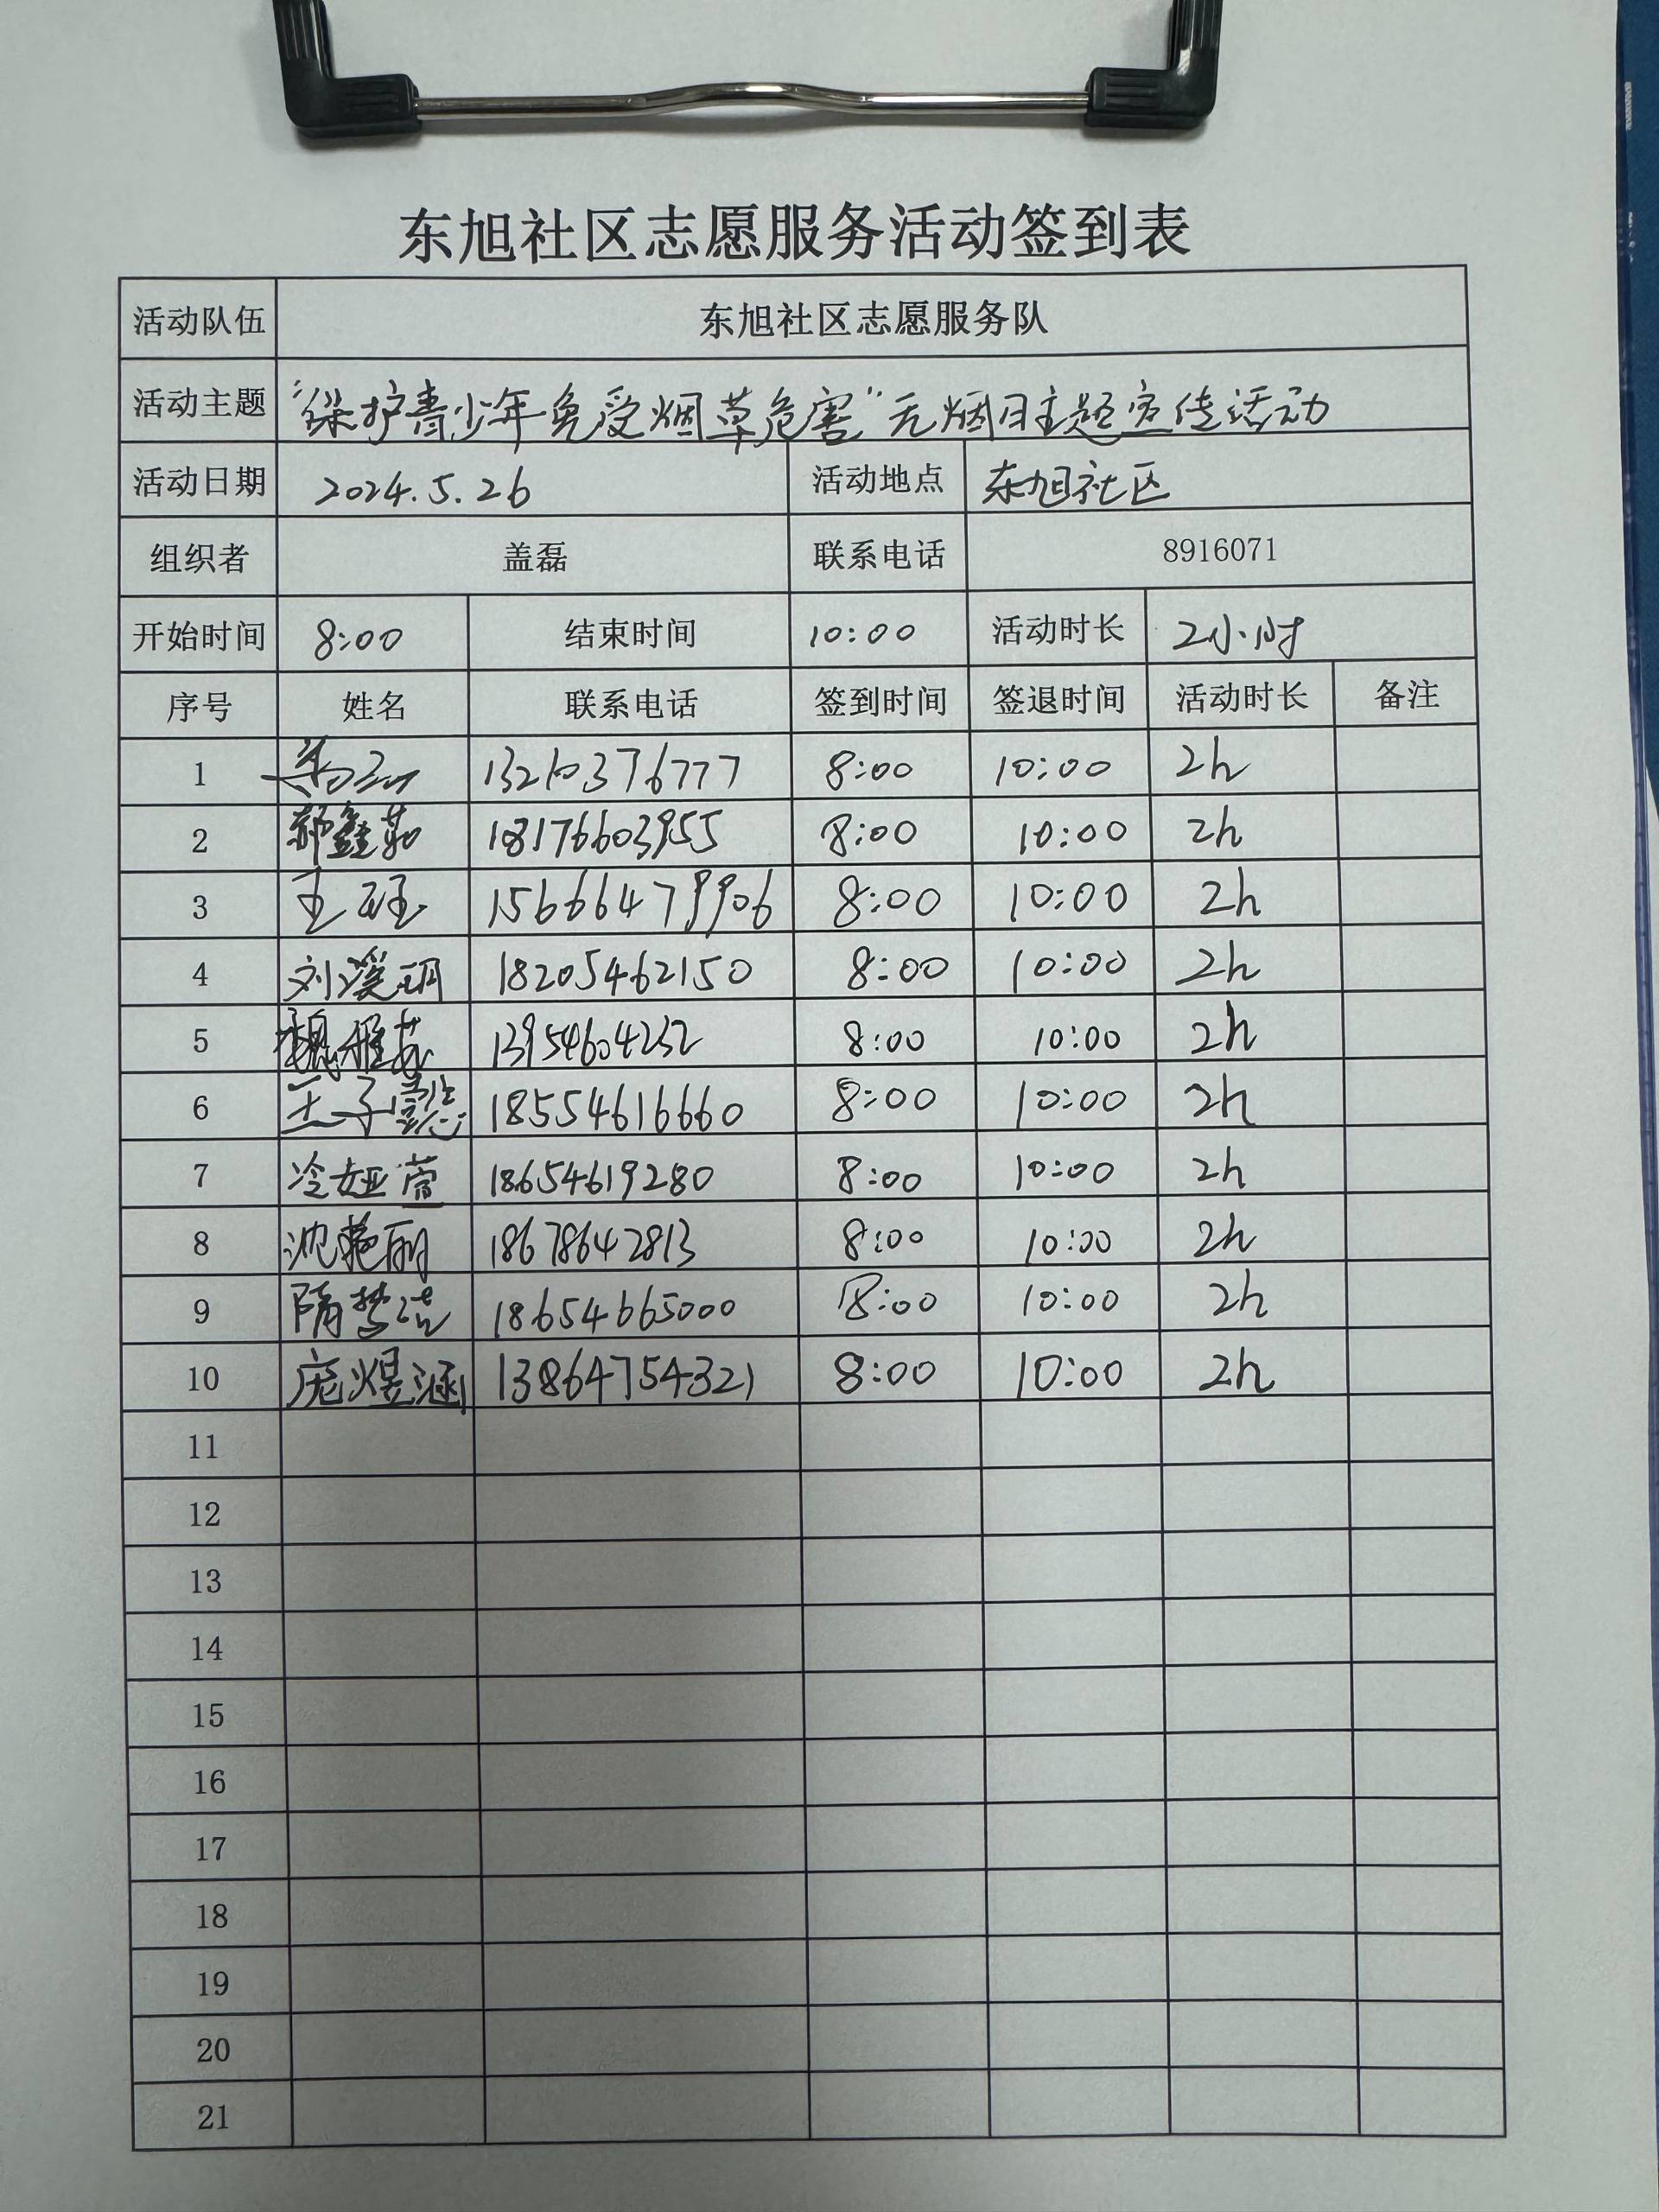 东旭社区志愿服务活动签到表
活动队伍 东旭社区志愿服务队
活动主题 "保护青少年免受烟草危害"无烟日主题宣传活动
活动日期 2024.5.26 活动地点 东旭社区
组织者 盖磊 联系电话 8916071
开始时间 8:00 结束时间 10:00 活动时长 2小时
序号 姓名 联系电话 签到时间 签退时间 活动时长 备注
1 13210376777 8:00 10:00 2h
2 18176603955 8:00 10:00 2h
3 王砡 15666479906 8:00 10:00 2h
4 刘溪玥 18205462150 8:00 10:00 2h
5 魏雅茹 13954604232 8:00 10:00 2h
6 王子懿 18554616660 8:00 10:00 2h
7 冷娅萱 18654619280 8:00 10:00 2h
8 沈艳丽 18678642813 8:00 10:00 2h
9 隋梦洁 18654665000 8:00 10:00 2h
10 庞煜涵 13864754321 8:00 10:00 2h
11
12
13
14
15
16
17
18
19
20
21